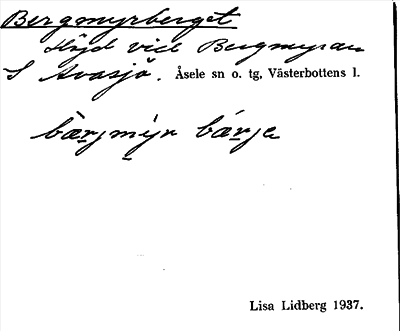 Bergmyrberget
Höjd vid Bergmyran
S Avasjö. Åsele sn o. tg, Västerbottens l.
bærjmyr bárja
Lisa Lidberg 1937.